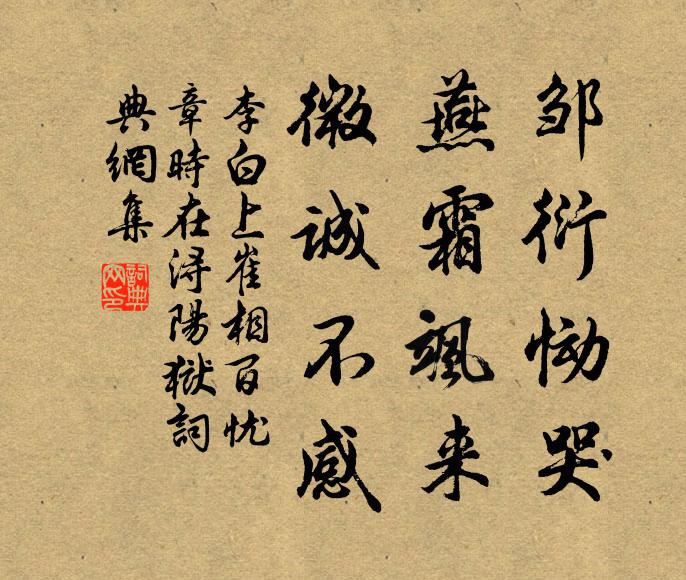 邹衍恸哭
燕霜飒来
微诚不感
李白上崔相百忧
章時在浔陽狱詞
典網集
詞典网印